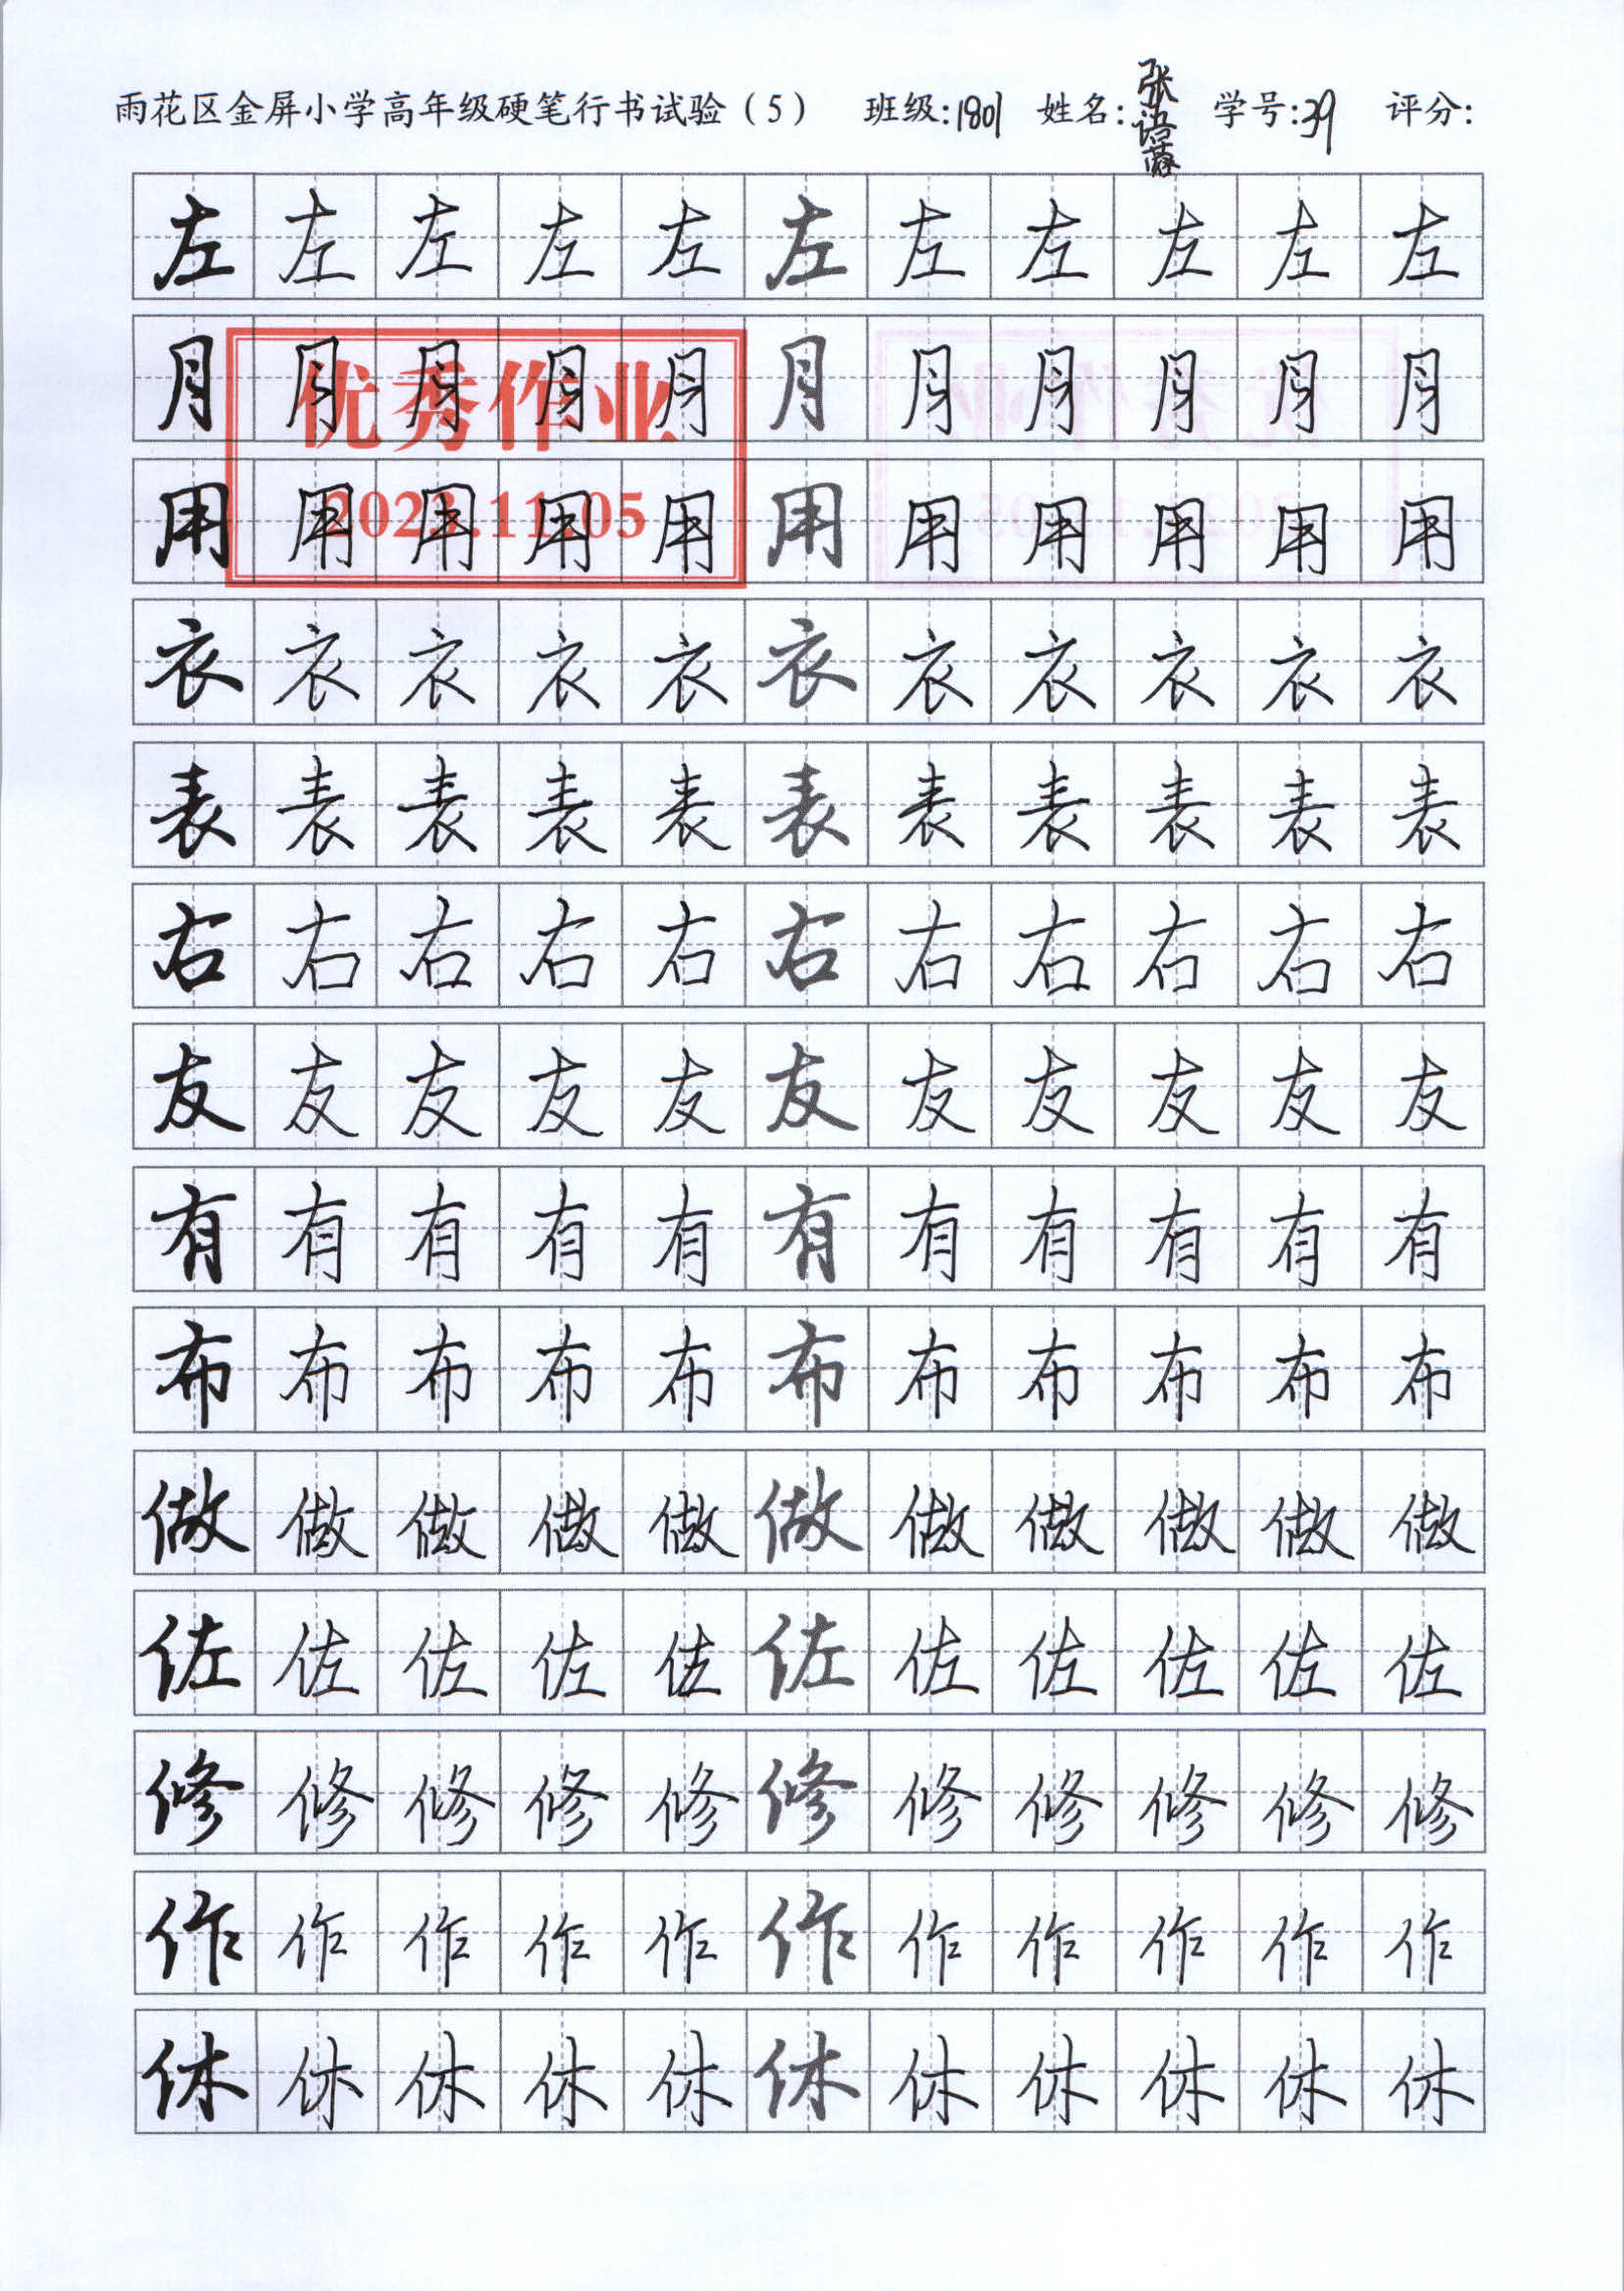 雨花区金屏小学高年级硬笔行书试验（5） 班级:1801 姓名:张语 学号:39 评分:
左左左左左左左左左左左
月月月月月月月月月月月
优秀作业
用用用用用用用用用用用
2023.11.05
衣衣衣衣衣衣衣衣衣衣衣
表表表表表表表表表表表
右右右右右右右右右右右
友友友友友友友友友友友
有有有有有有有有有有有
布布布布布布布布布布布
做做做做做做做做做做做
佐佐佐佐佐佐佐佐佐佐佐
修修修修修修修修修修修
作作作作作作作作作作作
休休休休休休休休休休休